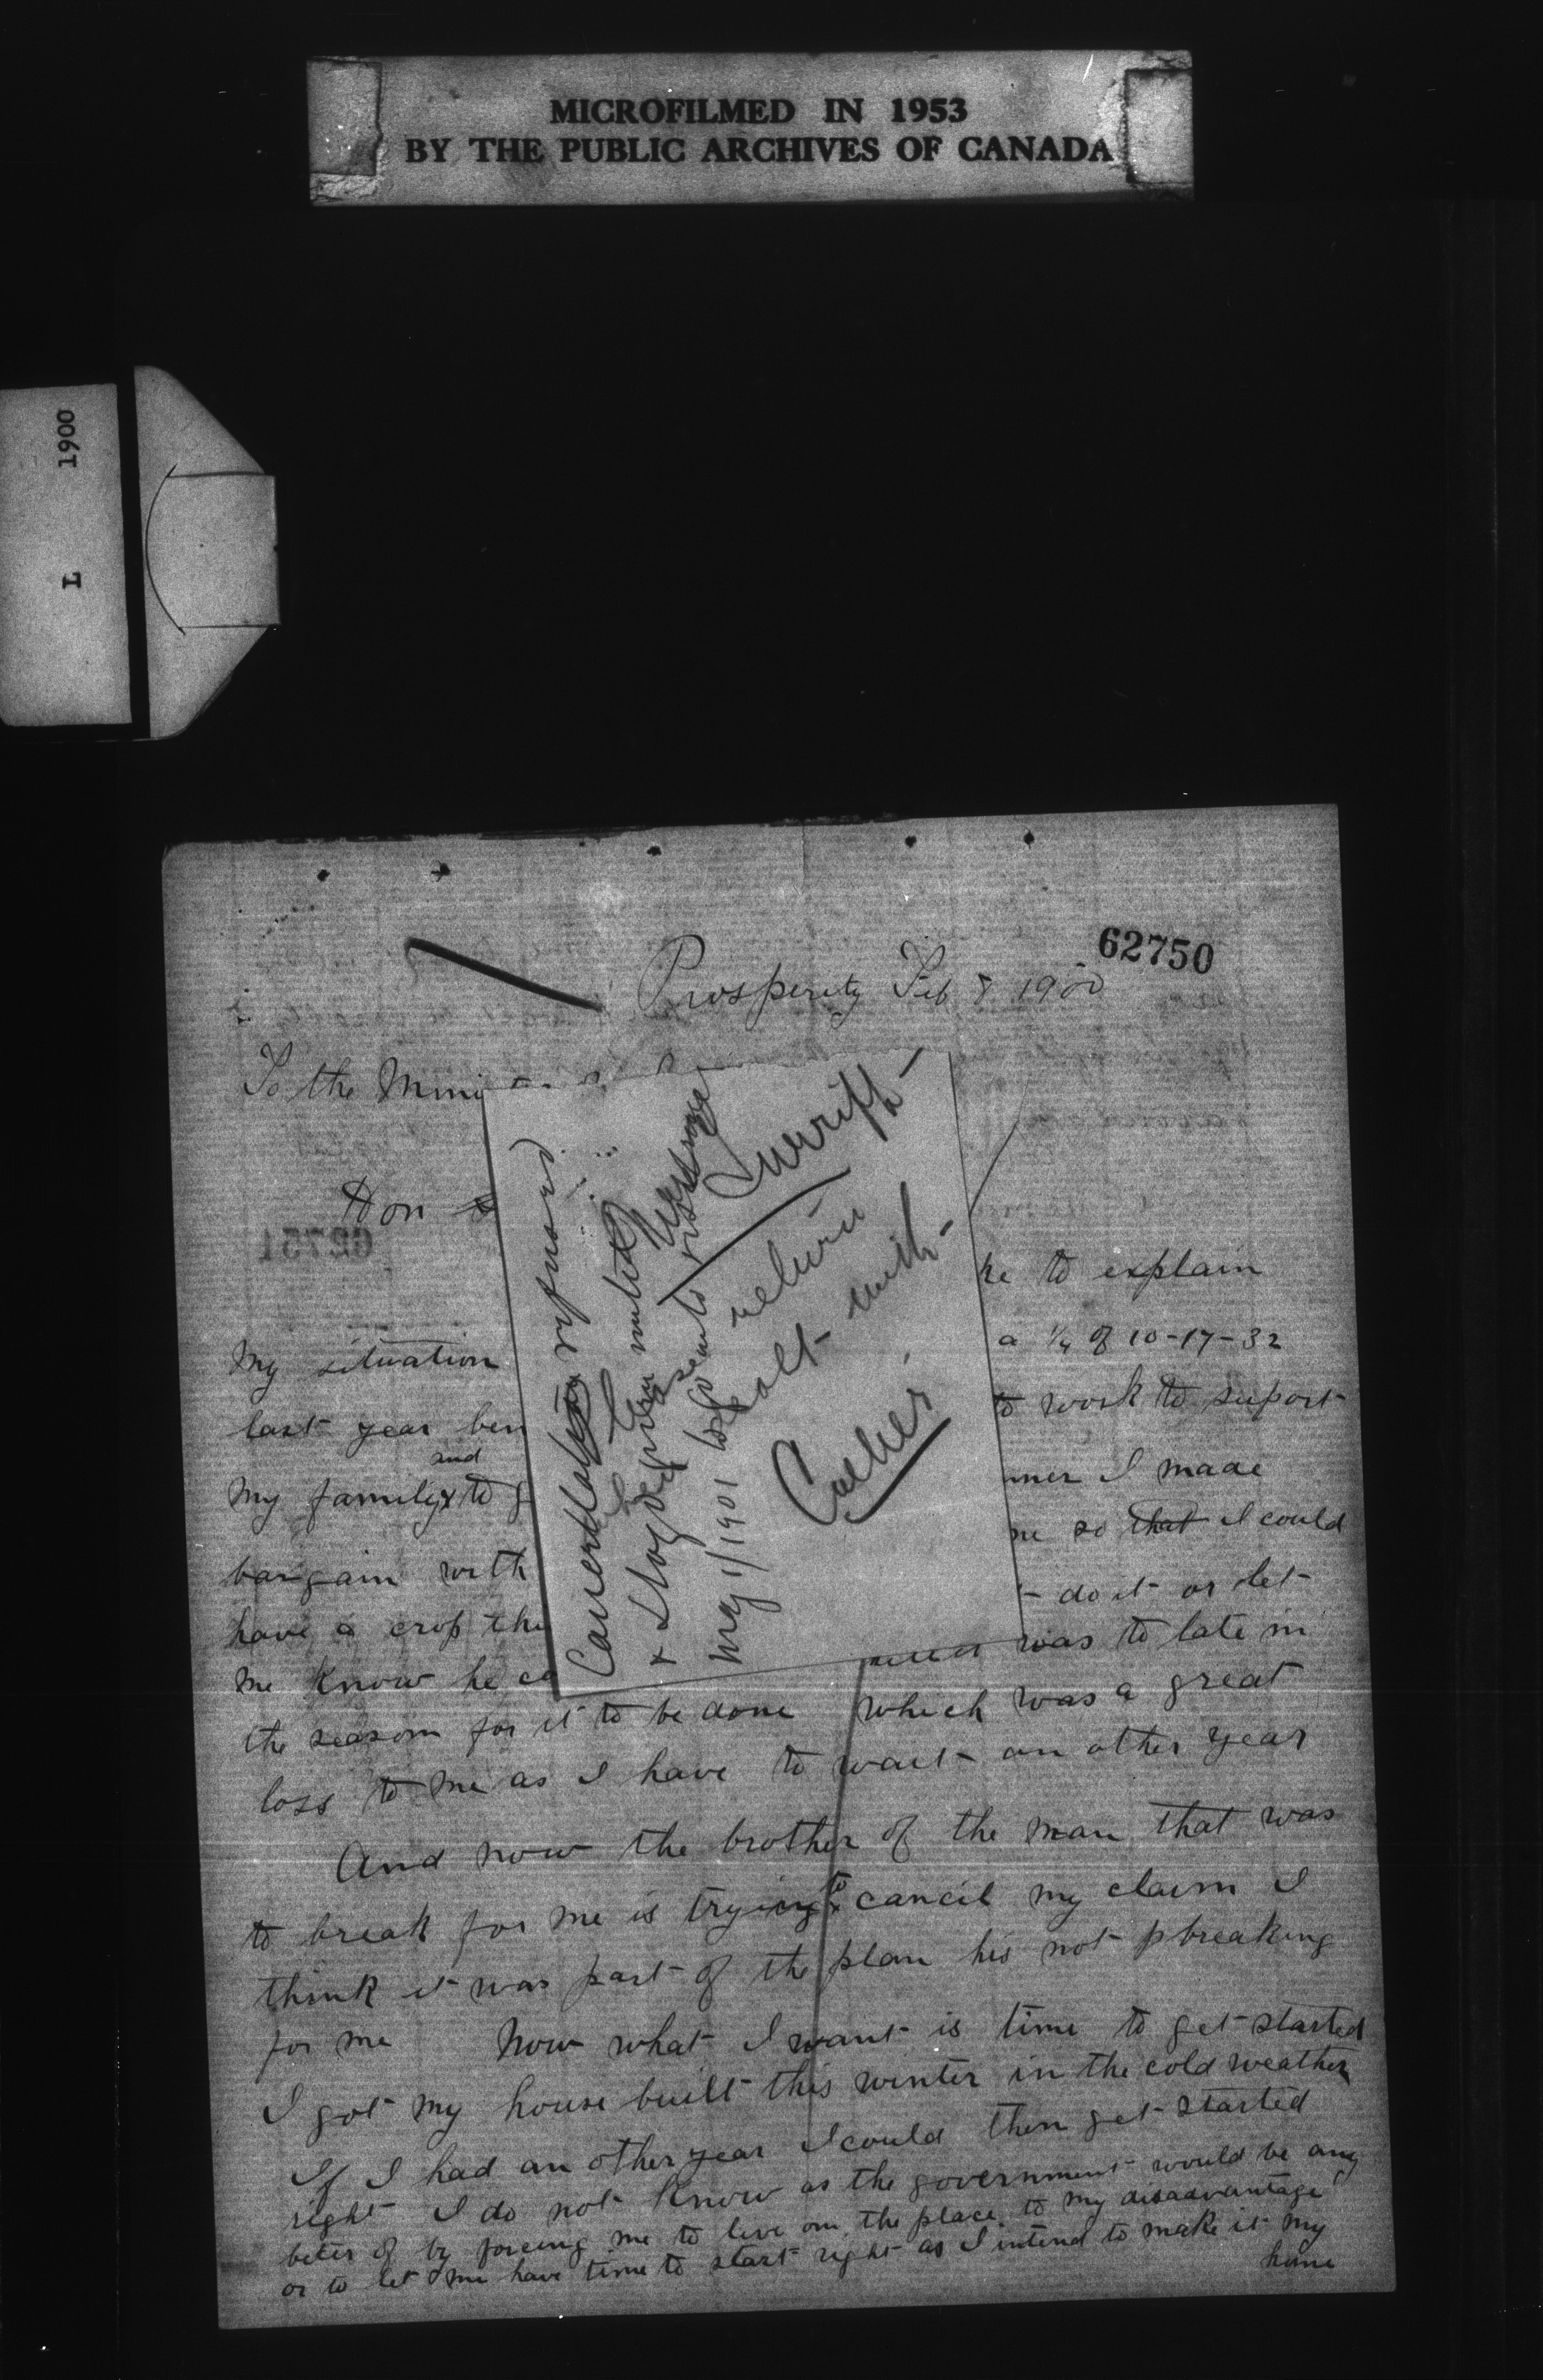 MICROFILMED IN 1953
BY THE PUBLIC ARCHIVES OF CANADA
1900
L
62750
Prosperity Feb 8 1900
To the Mini
Hon
62751
ke to explain
My situation
a 1/4 of 10-17-32
last year ben
to work to suport
and
My family to g
mer I made
bargain with
me so that I could
have a crop thi
do it or let
me know he ca
was to late in
the season for it to be done which was a great
loss to me as I have to wait an other year
And now the brother of the man that was
to break for me is trying to cancil my claim I
think it was part of the plan his not breaking
for me Now what I want is time to get started
I got my house built this winter in the cold weather
If I had an other year I could then get started
right I do not know as the government would be any
beter of by forcing me to live on the place to my disadvantage
or to let me have time to start right as I intend to make it my
home
Cancellation refused
until
May 1/1901 to
Turriff
return
dealt with